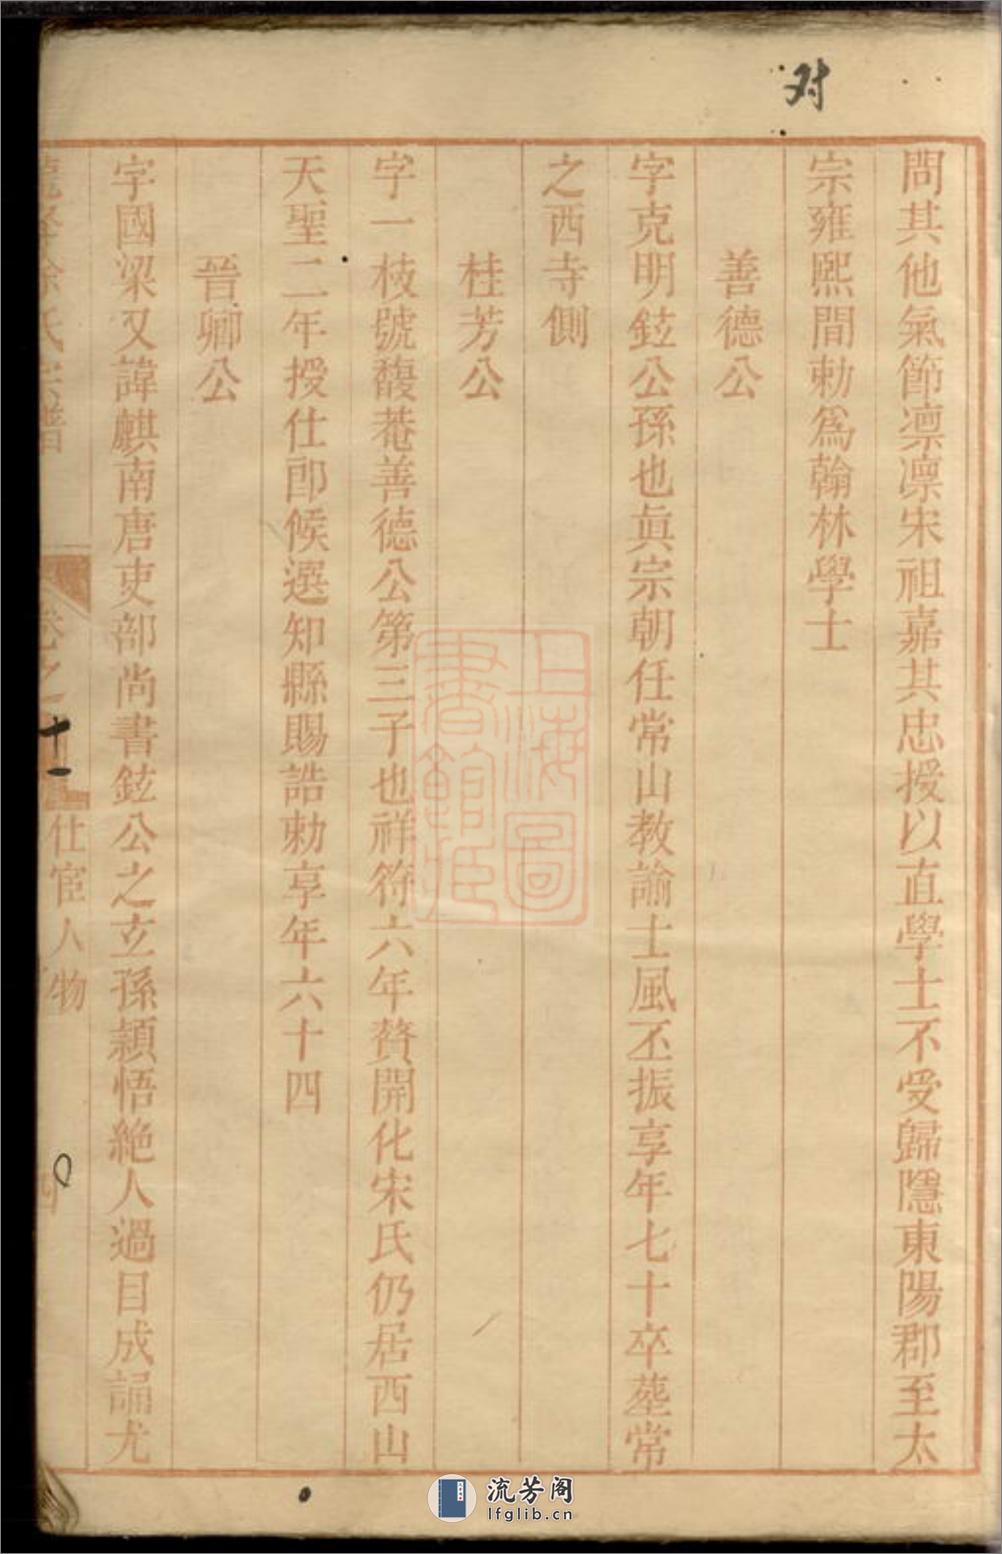 对
問其他氣節凛凛宋祖嘉其忠授以直學士不受歸隱東陽郡至太
宗雍熙間勅爲翰林學士
善德公
字克明鉉公孫也眞宗朝任常山教諭士風丕振享年七十卒塟常
之西寺側
桂芳公
字一枝號馥菴善德公第三子也祥符六年贅開化宋氏仍居西山
天聖二年授仕郎候選知縣賜誥勅享年六十四
晉卿公
字國梁又諱麒南唐吏部尚書鉉公之玄孫穎悟絶人過目成誦尤
氏宗譜
卷之十一
仕宦人物
上海圖書館藏
流芳阁
lfglib.cn